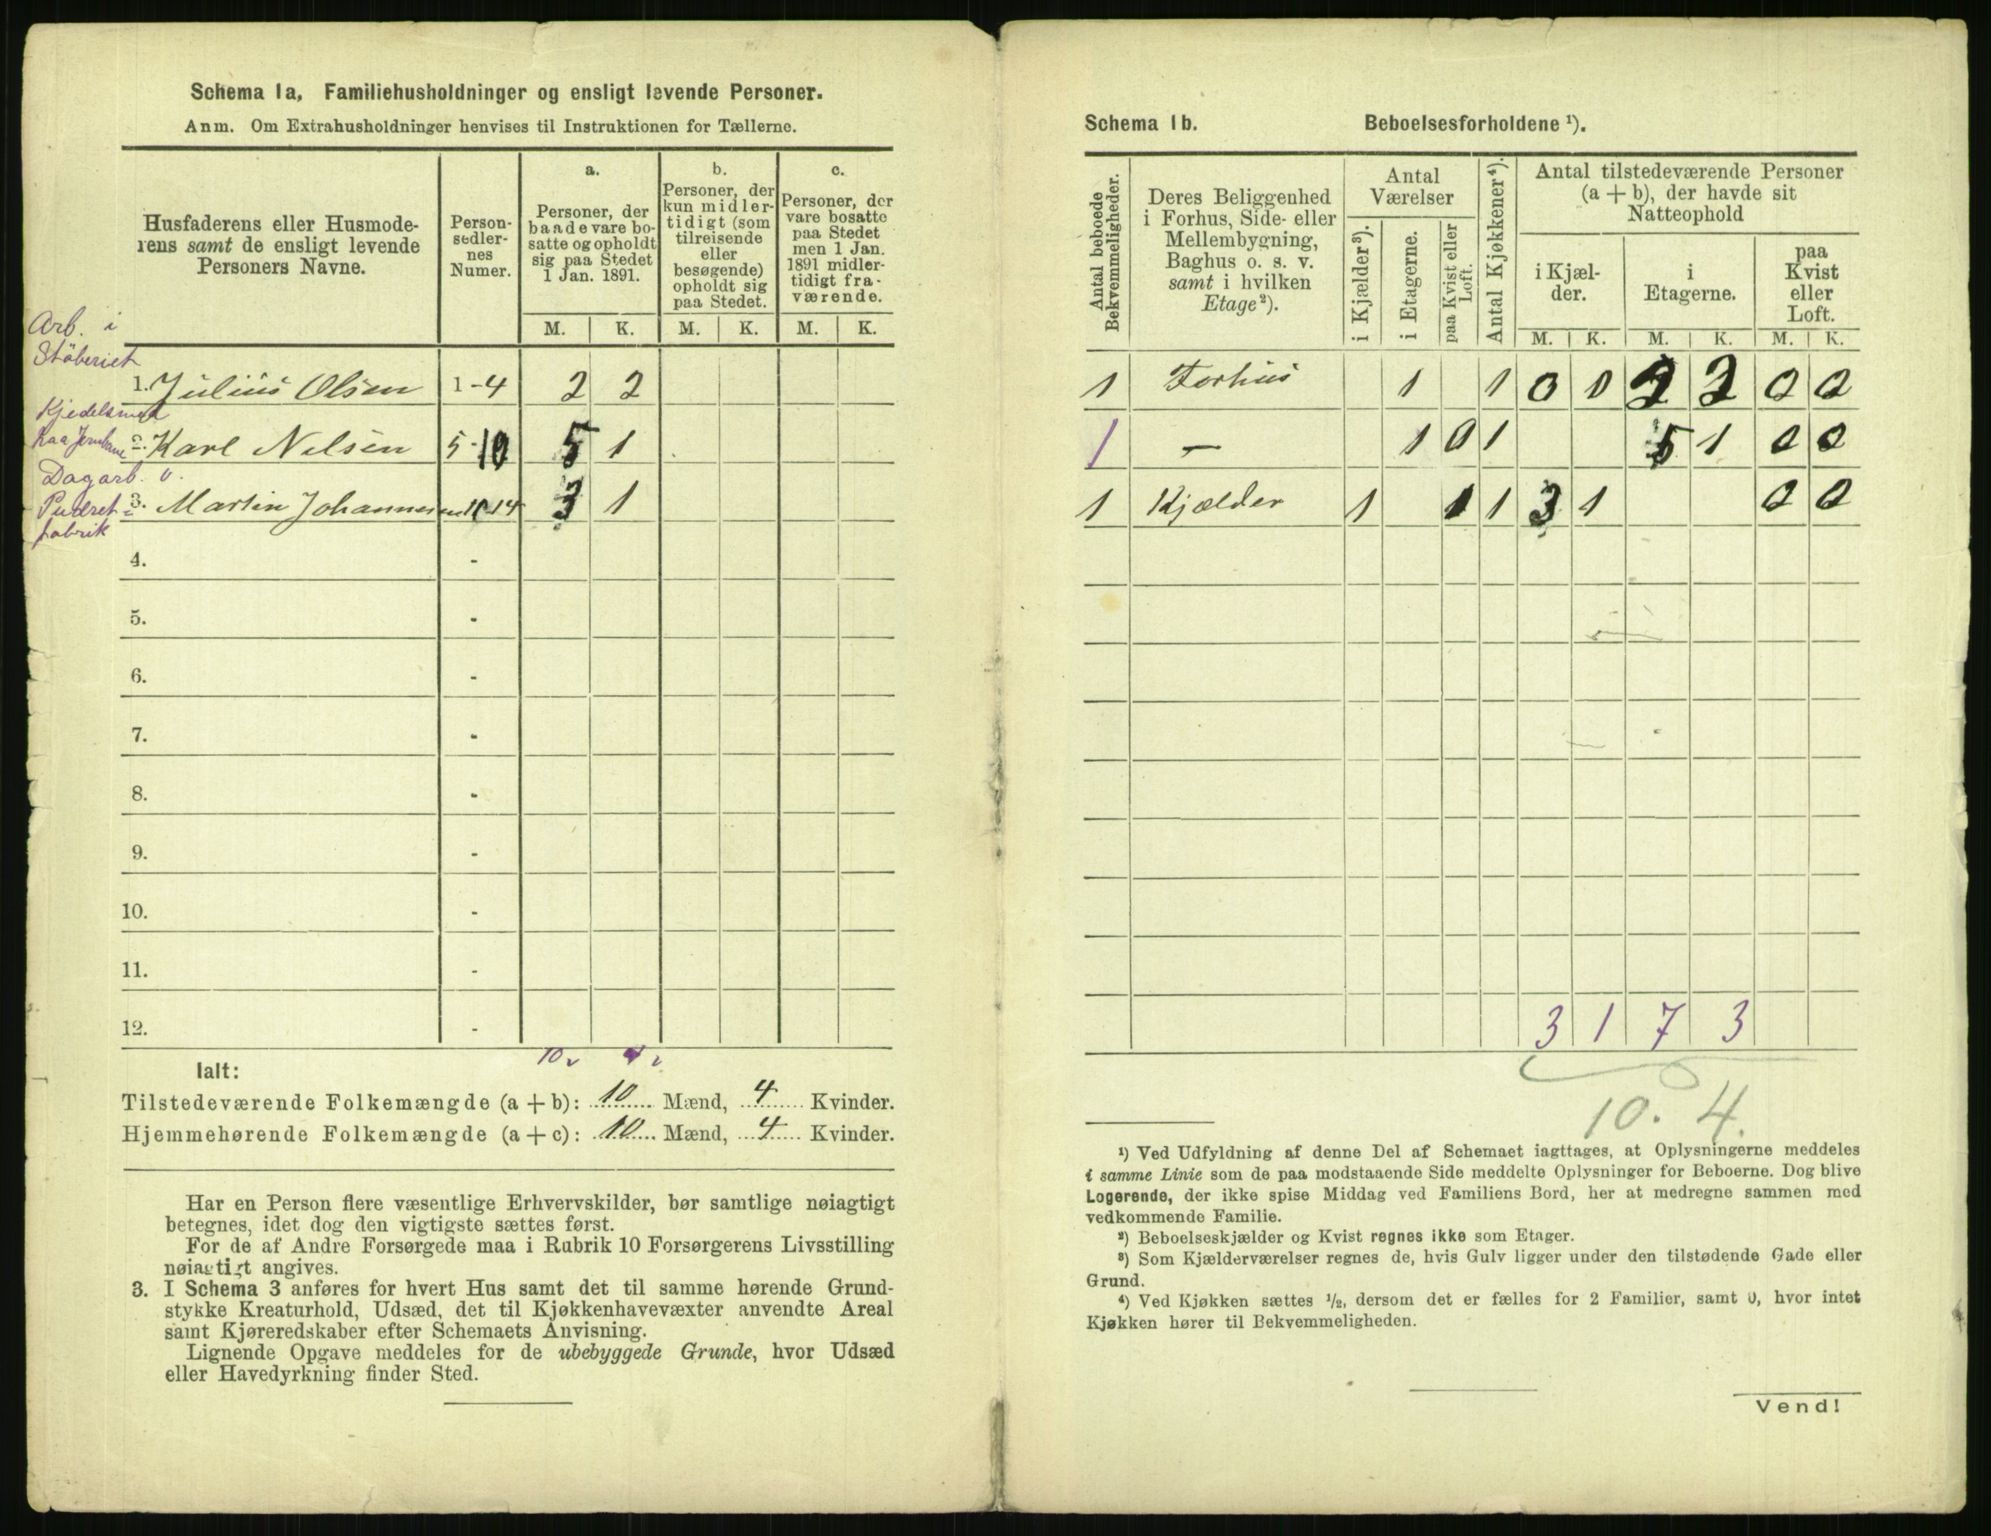 Schema 1a, Familiehusholdninger og ensligt levende Personer.
Anm. Om Extrahusholdninger henvises til Instruktionen for Tællerne.
Husfaderens eller Husmode-
rens samt de ensligt levende
Personers Navne.
Person-
sedler-
nes
Numer.
a.
Personer, der
baade vare bo-
satte og opholdt
sig paa Stedet
1 Jan. 1891.
b.
Personer, der
kun midler-
tidigt (som
tilreisende
eller
besøgende)
opholdt sig
paa Stedet.
c.
Personer, der
vare bosatte
paa Stedet
men 1 Jan.
1891 midler-
tidigt fra-
værende.
M. K. M. K. M. K.
Arb. i
Stöberiet
1. Julius Olsen 1-4 2 2
Kjedelsmed
2. Karl Nilsen 5-10 5 1
Dagarb. v.
3. Martin Johannesen 14 3 1
Pudret-
fabrik
4. -
5. -
6. -
7. -
8. -
9. -
10. -
11. -
12. -
10 4
Ialt:
Tilstedeværende Folkemængde (a + b): 10 Mænd, 4 Kvinder.
Hjemmehørende Folkemængde (a + c): 10 Mænd, 4 Kvinder.
Har en Person flere væsentlige Erhvervskilder, bør samtlige nøiagtigt
betegnes, idet dog den vigtigste sættes først.
For de af Andre Forsørgede maa i Rubrik 10 Forsørgerens Livsstilling
nøiagtigt angives.
3. I Schema 3 anføres for hvert Hus samt det til samme hørende Grund-
stykke Kreaturhold, Udsæd, det til Kjøkkenhavevæxter anvendte Areal
samt Kjøreredskaber efter Schemaets Anvisning.
Lignende Opgave meddeles for de ubebyggede Grunde, hvor Udsæd
eller Havedyrkning finder Sted.
Schema 1b. Beboelsesforholdene ¹).
Antal beboede
Bekvemmeligheder.
Deres Beliggenhed
i Forhus, Side- eller
Mellembygning,
Baghus o. s. v.
samt i hvilken
Etage²).
Antal
Værelser
i Kjælder³).
i Etagerne.
paa Kvist eller
Loft.
Antal Kjøkkener⁴).
Antal tilstedeværende Personer
(a + b), der havde sit
Natteophold
i Kjæl-
der.
i
Etagerne.
paa
Kvist
eller
Loft.
M. K. M. K. M. K.
1 Forhus 1 1 0 0 2 2 0 0
1 — 1 0 1 5 1 0 0
1 Kjælder 1 1 1 3 1 0 0
3 1 7 3
10. 4.
¹) Ved Udfyldning af denne Del af Schemaet iagttages, at Oplysningerne meddeles
i samme Linie som de paa modstaaende Side meddelte Oplysninger for Beboerne. Dog blive
Logerende, der ikke spise Middag ved Familiens Bord, her at medregne sammen med
vedkommende Familie.
²) Beboelseskjælder og Kvist regnes ikke som Etager.
³) Som Kjælderværelser regnes de, hvis Gulv ligger under den tilstødende Gade eller
Grund.
⁴) Ved Kjøkken sættes ½, dersom det er fælles for 2 Familier, samt 0, hvor intet
Kjøkken hører til Bekvemmeligheden.
Vend!